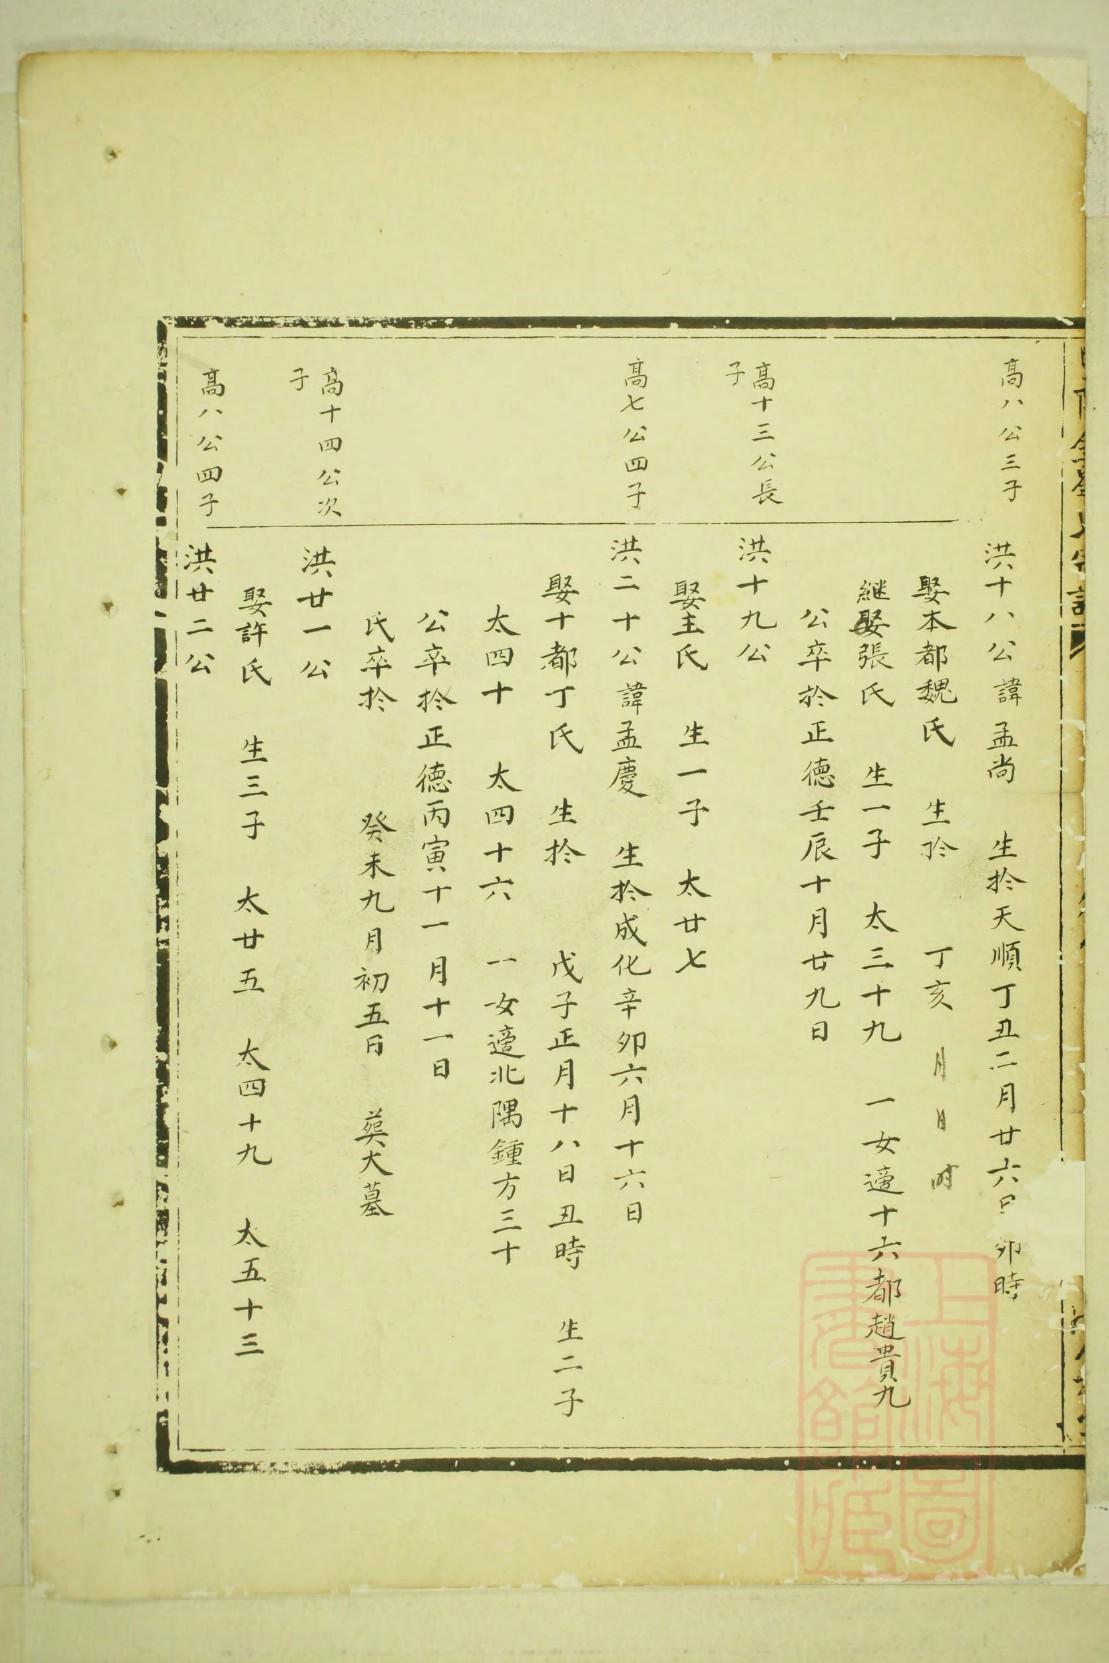 高八公三子
洪十八公諱孟尚 生於天順丁丑二月廿六日卯時
娶本都魏氏 生於 丁亥 月 日 時
継娶張氏 生一子 太三十九 一女適十六都趙貴九
公卒於正德壬辰十月廿九日
高十三公長
子
洪十九公
娶王氏 生一子 太廿七
高七公四子
洪二十公諱孟慶 生於成化辛卯六月十六日
娶十都丁氏 生於 戊子正月十八日丑時 生二子
太四十 太四十六 一女適北隅鍾方三十
公卒於正德丙寅十一月十一日
氏卒於 癸未九月初五日 葬大墓
高十四公次
子
洪廿一公
娶許氏 生三子 太廿五 太四十九 太五十三
高八公四子
洪廿二公
上海圖
書館藏